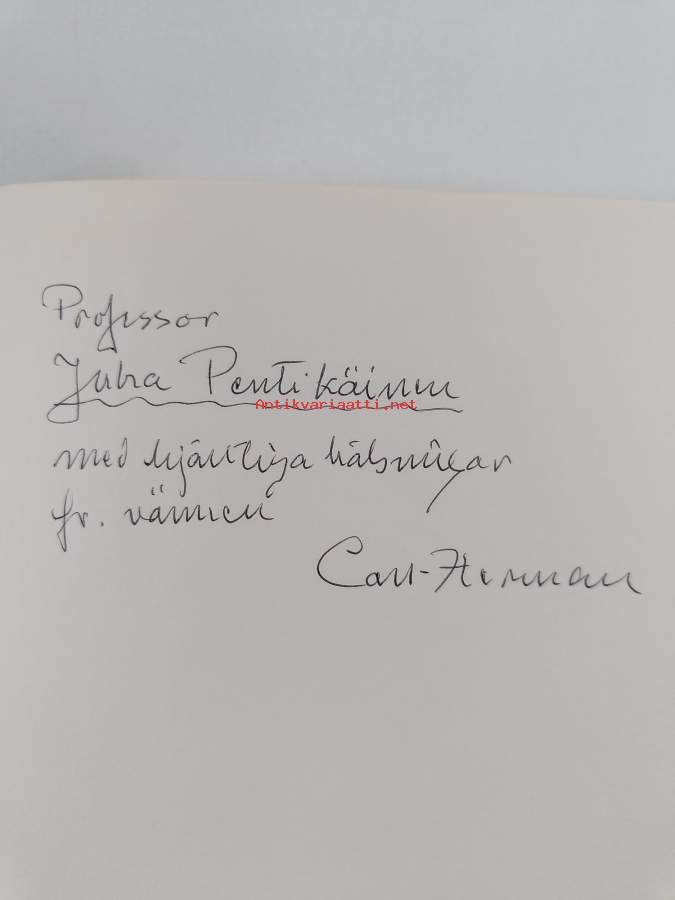 Professor
Juha Pentikäinen
Antikvariaatti.net
med hjärtliga hälsningar
fr. vännen
Carl-Herman